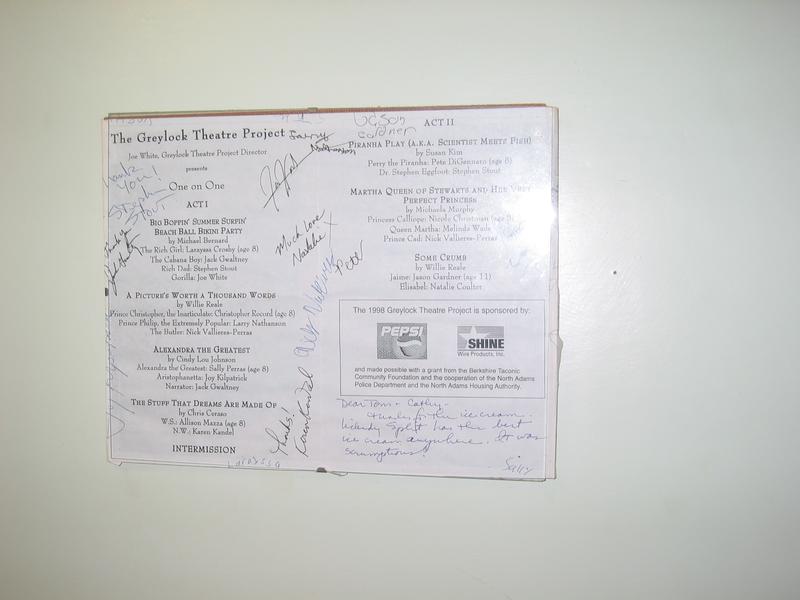 The Greylock Theatre Project
Joe White, Greylock Theatre Project Director
presents
One on One
ACT I
BIG BOPPIN' SUMMER SURFIN'
BEACH BALL BIKINI PARTY
by Michael Bernard
The Rich Girl: Larayssa Crosby (age 8)
The Cabana Boy: Jack Gwaltney
Rich Dad: Stephen Stout
Gorilla: Joe White
A PICTURE'S WORTH A THOUSAND WORDS
by Willie Reale
Prince Christopher, the Inarticulate: Christopher Record (age 8)
Prince Philip, the Extremely Popular: Larry Nathanson
The Butler: Nick Vallieres-Perras
ALEXANDRA THE GREATEST
by Cindy Lou Johnson
Alexandra the Greatest: Sally Perras (age 8)
Aristophanetta: Joy Kilpatrick
Narrator: Jack Gwaltney
THE STUFF THAT DREAMS ARE MADE OF
by Chris Ceraso
W.S.: Allison Mazza (age 8)
N.W.: Karen Kandel
INTERMISSION
Thank
You!
Stephen
Stout
Larry
Nathanson
Much Love
Natalie X
Pete
Nick
Thanks!
Karen Kandel
Larayssa
Jason
Gardner
ACT II
PIRANHA PLAY (A.K.A. SCIENTIST MEETS FISH)
by Susan Kim
Perry the Piranha: Pete DiGennaro (age 8)
Dr. Stephen Eggfoot: Stephen Stout
MARTHA QUEEN OF STEWARTS AND HER VERY
PERFECT PRINCESS
by Michaela Murphy
Princess Calliope: Nicole Christman (age 9)
Queen Martha: Melinda Wade
Prince Cad: Nick Vallieres-Perras
SOME CRUMB
by Willie Reale
Jaime: Jason Gardner (age 11)
Elisabel: Natalie Coulter
The 1998 Greylock Theatre Project is sponsored by:
PEPSI
SHINE
Wire Products, Inc.
and made possible with a grant from the Berkshire Taconic
Community Foundation and the cooperation of the North Adams
Police Department and the North Adams Housing Authority.
Dear Tom + Cathy -
thanks for the ice cream.
Lickety Split has the best
ice cream anywhere. It was
scrumptious!
Sally